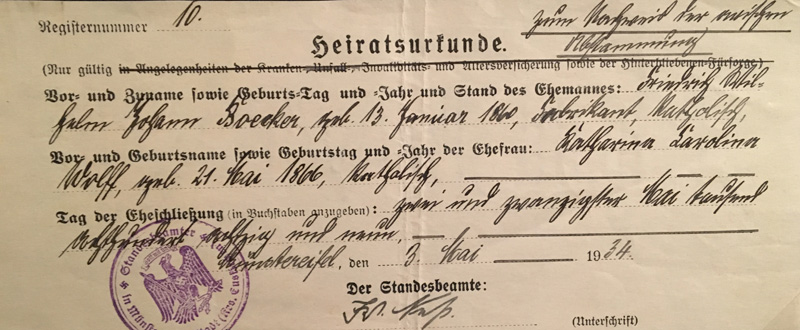 Registernummer 10.
zum Nachweis der arischen
Abstammung
Heiratsurkunde.
(Nur gültig in Angelegenheiten der Kranken-, Unfall-, Invaliditäts- und Altersversicherung sowie der Hinterbliebenen-Fürsorge)
Vor- und Zuname sowie Geburts-Tag und -Jahr und Stand des Ehemannes: Friedrich Wil-
helm Johann Boecker, geb. 13. Januar 1860, Fabrikant, katholisch,
Vor- und Geburtsname sowie Geburtstag und -Jahr der Ehefrau: Katharina Carolina
Wolff, geb. 21. Mai 1866, katholisch,
Tag der Eheschließung (in Buchstaben anzugeben): zwei und zwanzigster Mai tausend
achthundert achtzig und neun.
Münstereifel, den 3. Mai 1934.
Der Standesbeamte:
(Unterschrift)